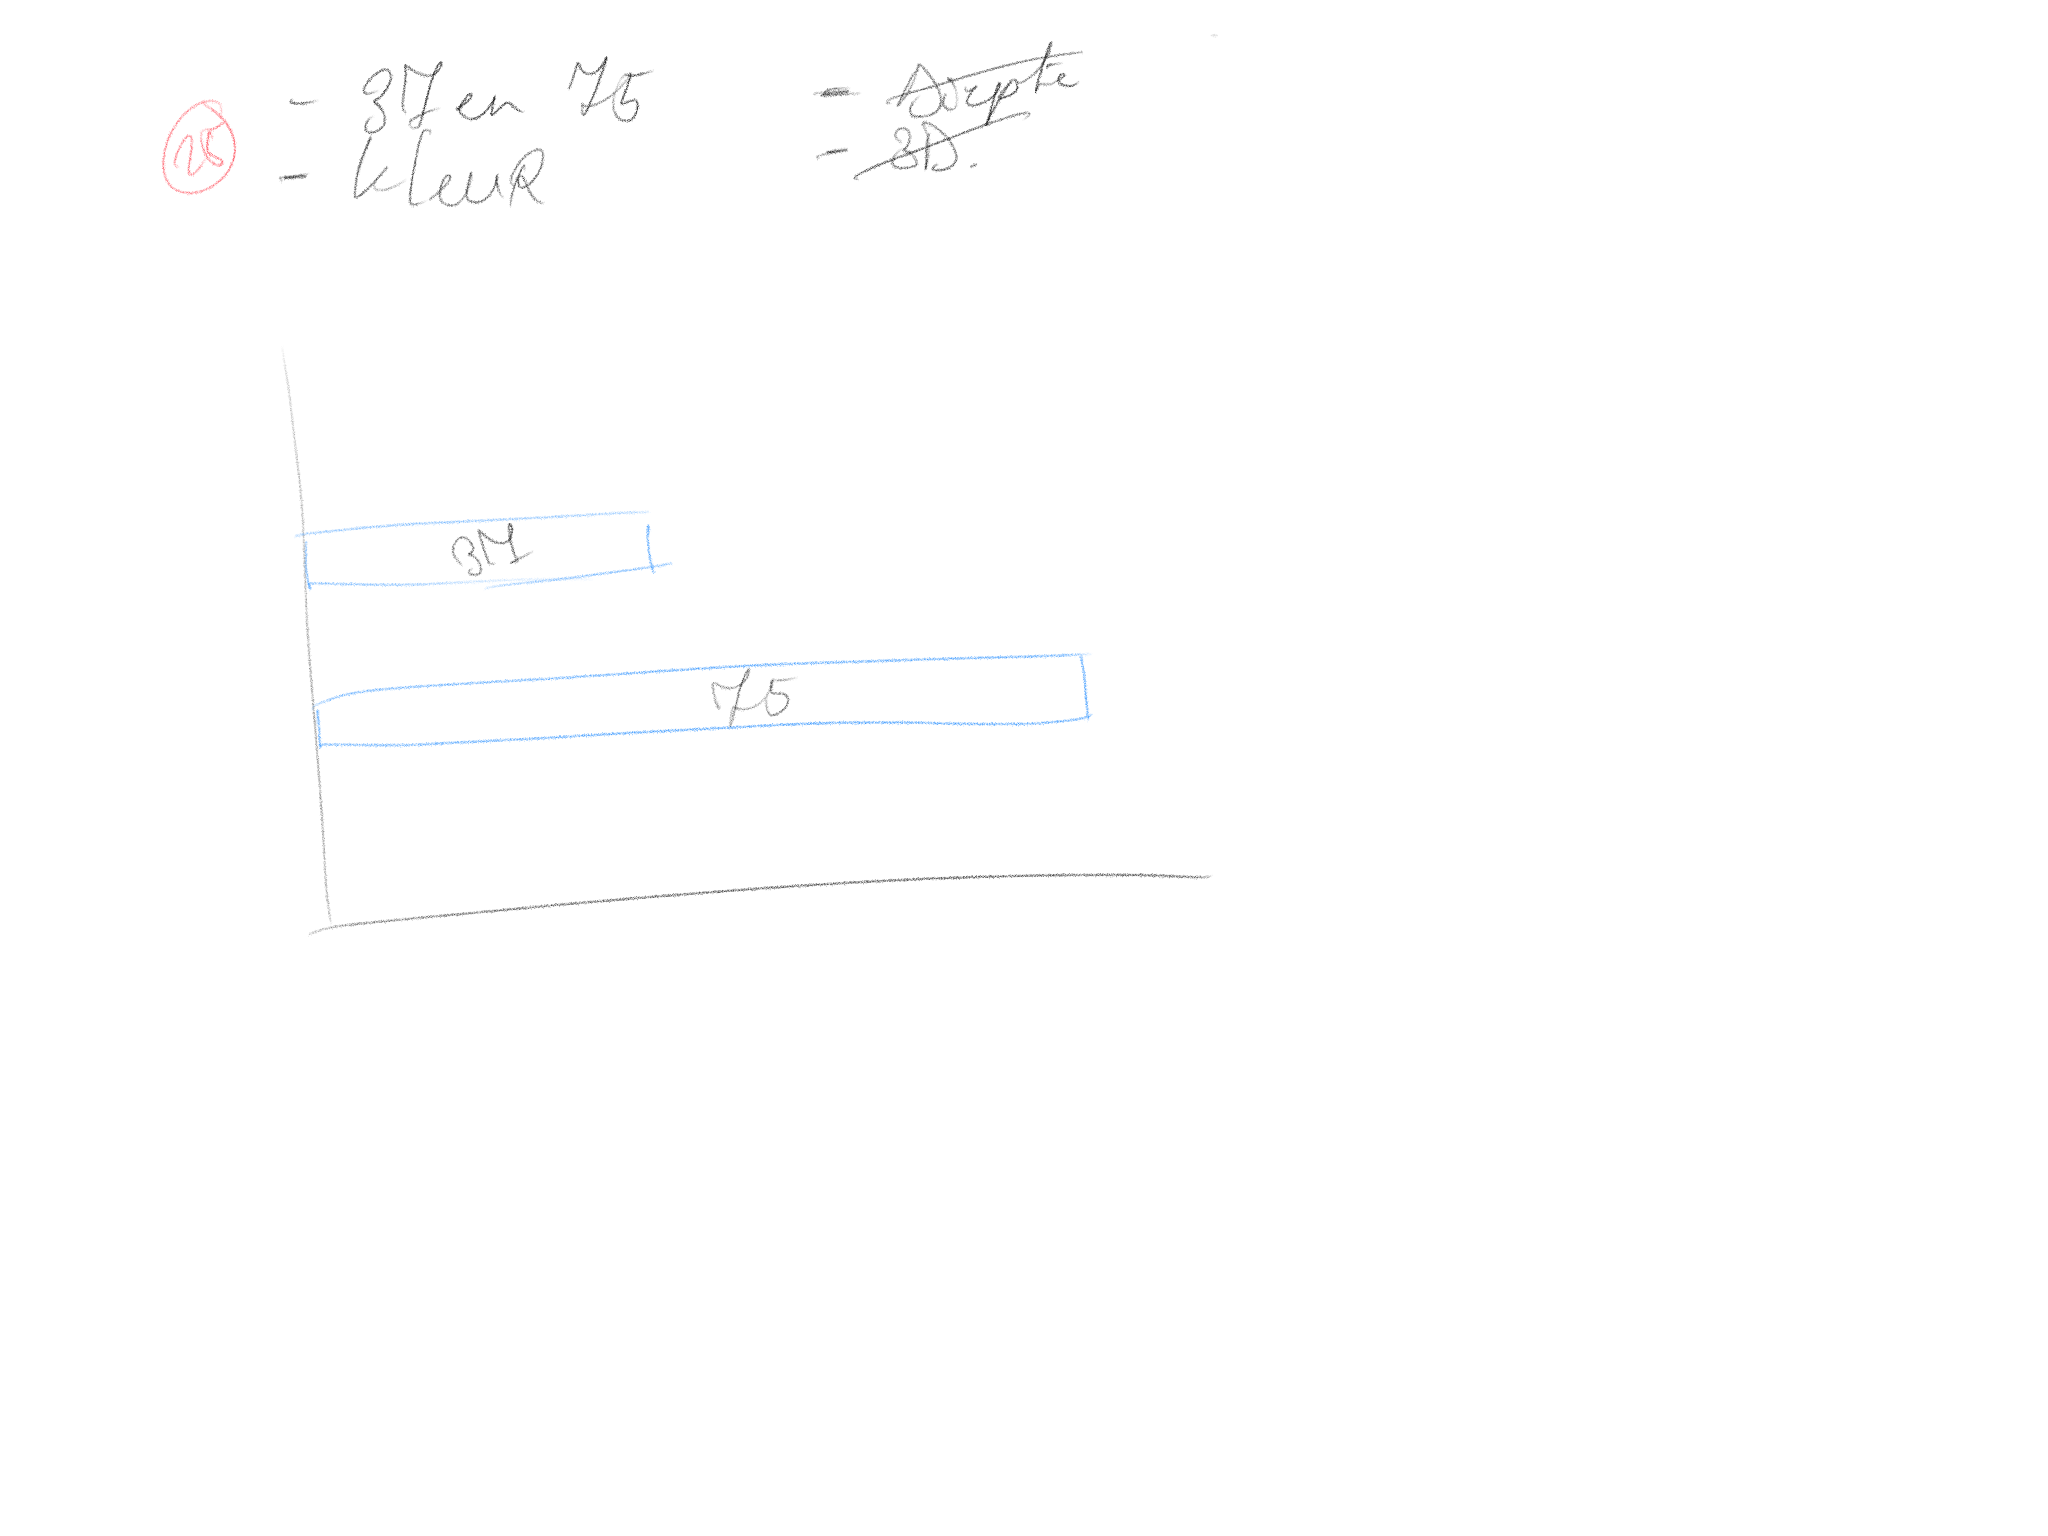 25
- 37 en 75
- kleuR
- Diepte
- 3D.
37
75